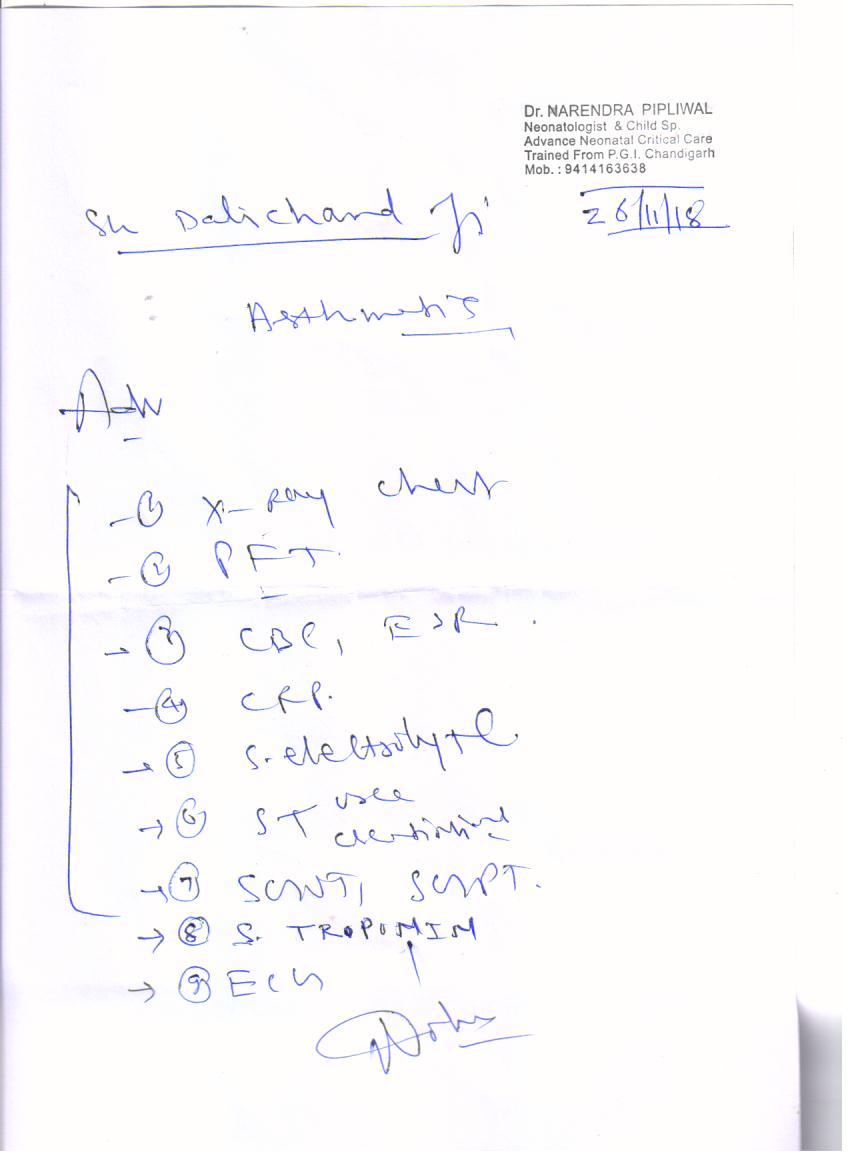 Dr. NARENDRA PIPLIWAL
Neonatologist & Child Sp.
Advance Neonatal Critical Care
Trained From P.G.I. Chandigarh
Mob. : 9414163638
26/11/18
Sh Dalichand Ji
Asthmatic
Adv
① X-ray chest
② PFT.
③ CBC, ESR.
④ CRP.
⑤ S. electrolyte.
⑥ urea
creatinine
⑦ SGOT, SGPT.
→ ⑧ S. TROPONIN
→ ⑨ ECG